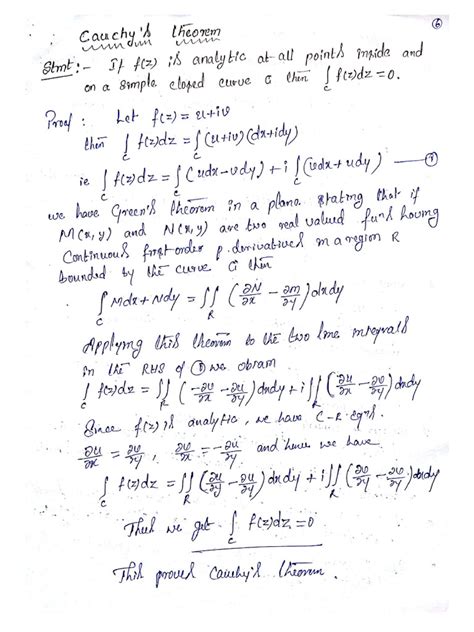 ⑥
Cauchy's theorem
Stmt:- If f(z) is analytic at all points inside and
on a simple closed curve C then ∫_C f(z)dz = 0.
Proof : Let f(z) = u+iv
then ∫_C f(z)dz = ∫_C (u+iv)(dx+idy)
ie ∫_C f(z)dz = ∫_C (udx-vdy) + i ∫_C (vdx+udy) — ①
we have Green's theorem in a plane stating that if
M(x,y) and N(x,y) are two real valued funs having
continuous first order p. derivatives in a region R
bounded by the curve C then
∫_C Mdx + Ndy = ∬_R (∂N/∂x - ∂m/∂y) dxdy
Applying this theorem to the two line integrals
in the RHS of ① we obtain
∫_C f(z)dz = ∬_R (-∂v/∂x - ∂u/∂y) dxdy + i ∬_R (∂u/∂x - ∂v/∂y) dxdy
Since f(z) is analytic, we have C-R eqns.
∂u/∂x = ∂v/∂y , ∂v/∂x = -∂u/∂y and hence we have
∫_C f(z)dz = ∬_R (∂u/∂y - ∂u/∂y) dxdy + i ∬_R (∂v/∂y - ∂v/∂y) dxdy
Thus we get ∫_C f(z)dz = 0
This proved Cauchy's theorem.